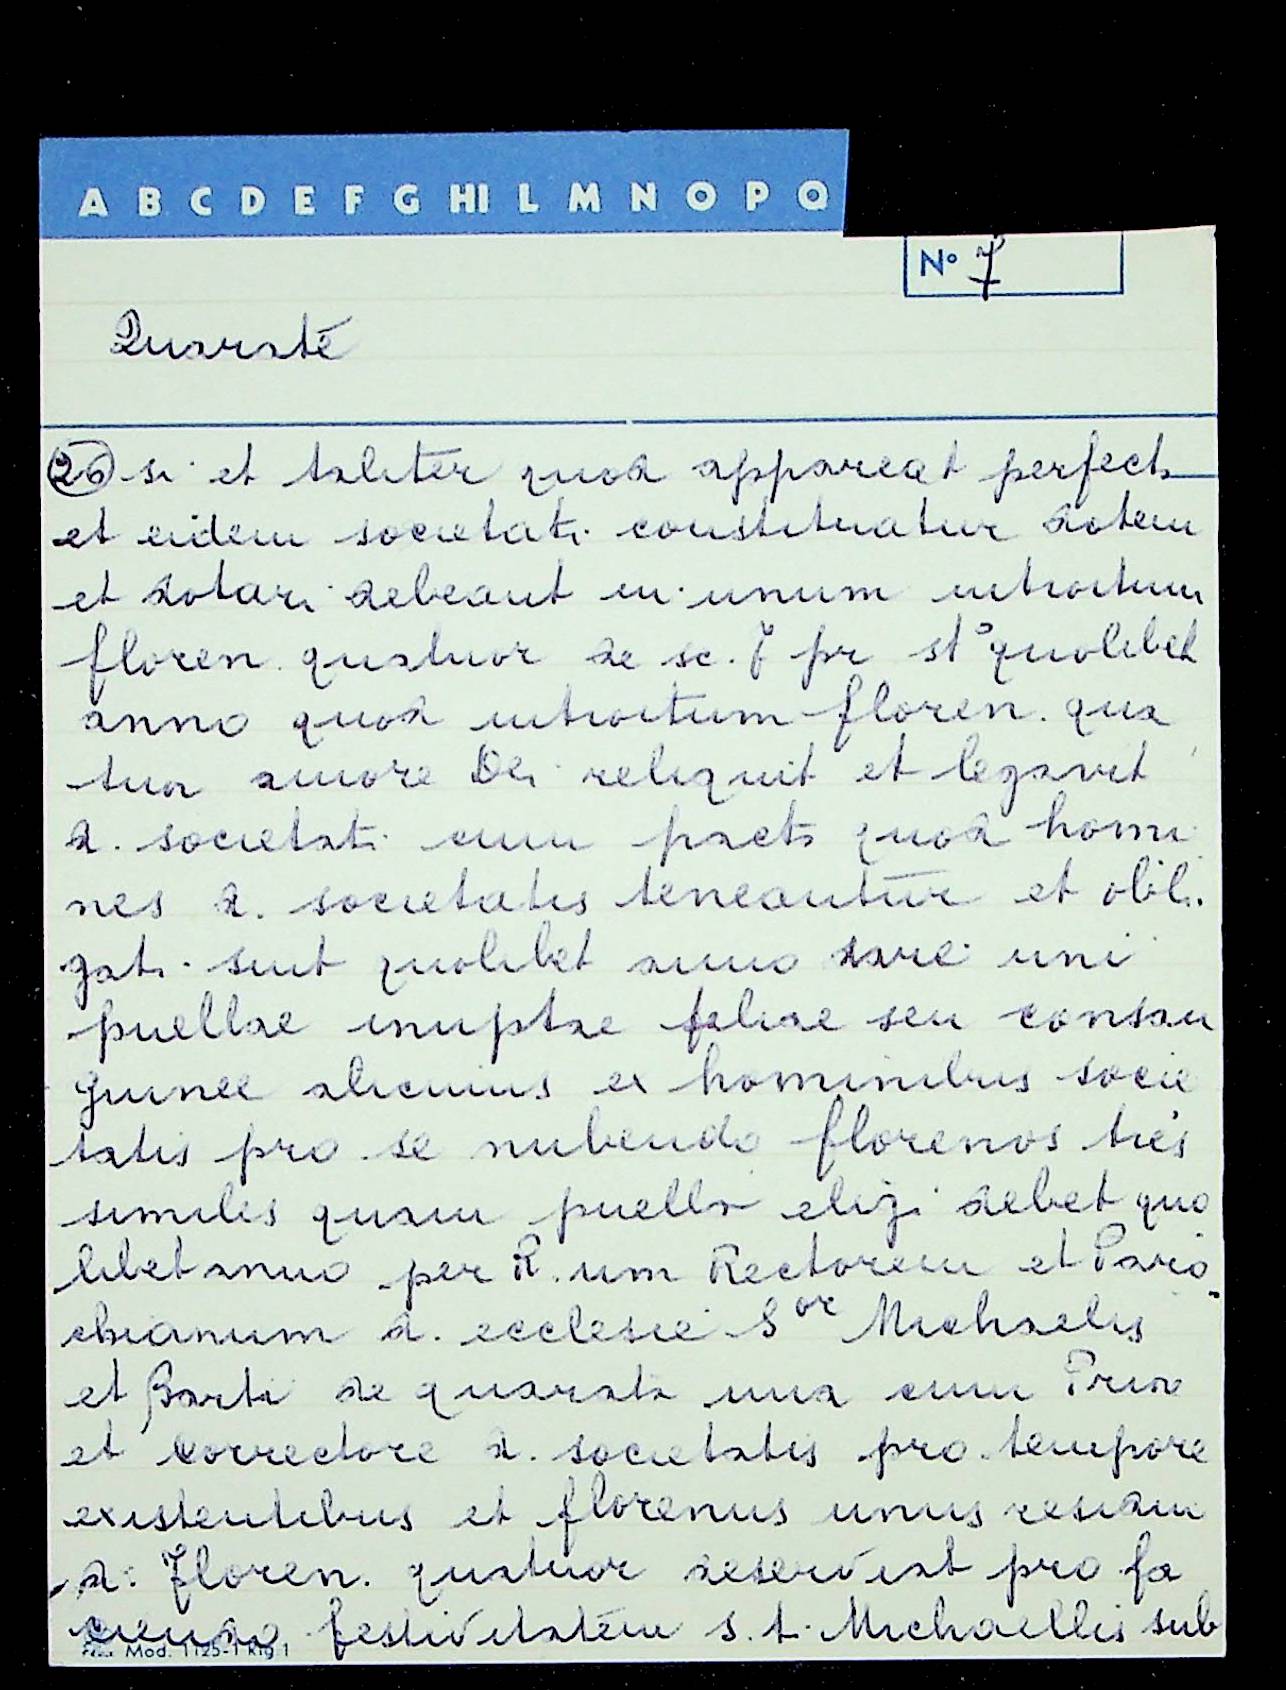 A B C D E F G HI L M N O P Q
N° 7
Quaraté
26 si et taliter quod appareat perfecta
et eidem societati constituatur dotem
et dotari debeant in unum introitum
floren. quatuor de sc. 7 pr st° quolibet
anno quod introitum floren. qua
tuor amore Dei reliquit et legavit
d. societati cum pacto quod homi
nes d. societatis teneantur et obli
gati sint quolibet anno dare uni
puellae inuptae filiae seu consan
guinee alicuius ex hominibus socie
tatis pro se nubendo florenos tres
similes quam puella eligi debet quo
libet anno per R.um Rectorem et Paro
chianum d. ecclesie S.or Michaelis
et Barti de quarata una cum Priore
et correctore d. societatis pro tempore
existentibus et florenus unus residuu
d. Floren. quatuor deserviat pro fa
ciendo festivitatem s.t. Michaellis sub
Mod. 1125-1 Rig 1